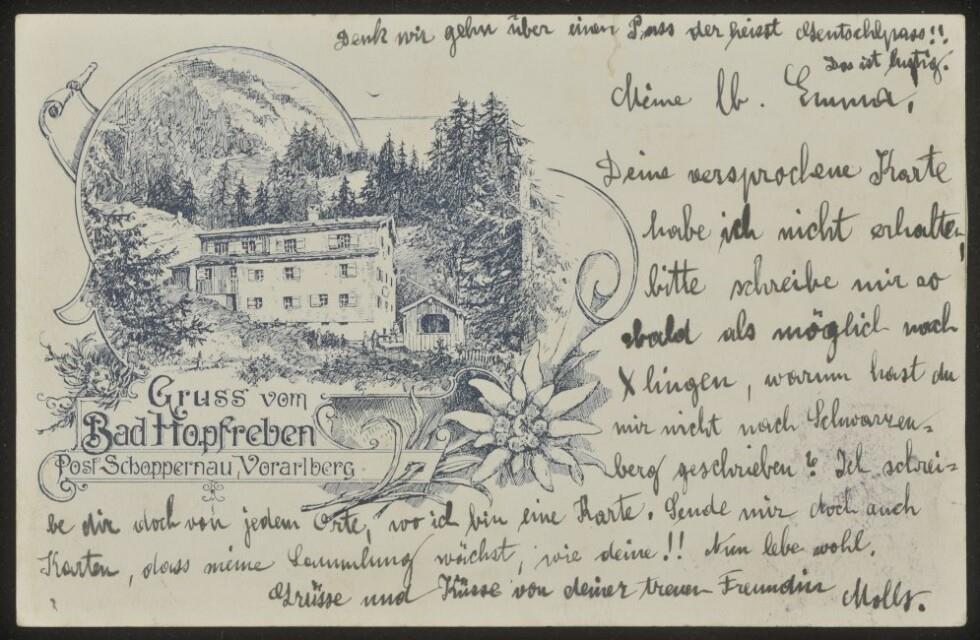 Denk wir gehn über einen Pass der heisst Gentschlpass!!
Das ist lustig.
Meine lb. Emma,
Deine versprochene Karte
habe ich nicht erhalten,
bitte schreibe mir so
bald als möglich nach
Xlingen, warum hast du
mir nicht nach Schwarzen-
berg geschrieben? Ich schrei-
be dir doch von jedem Orte, wo ich bin eine Karte. Sende mir doch auch
Karten, dass meine Sammlung wächst, wie deine!! Nun lebe wohl.
Grüsse und Küsse von deiner treuen Freundin Molly.
Gruss vom
Bad Hopfreben
Post Schoppernau Vorarlberg